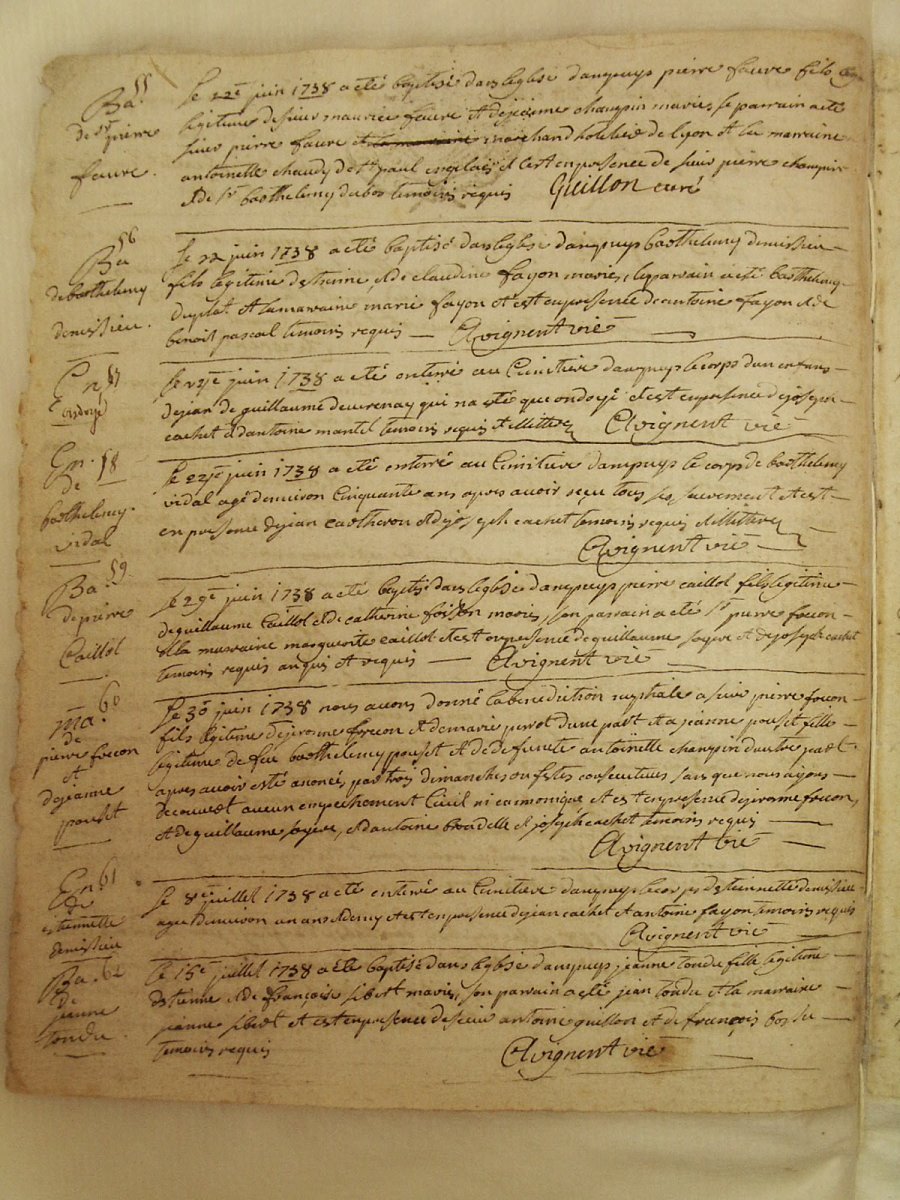 55
Ba
de sr pierre
faure.
le 22e juin 1738 a eté baptisé dans leglise dampuys pierre faure fils
legitime de sieur maurice faure et de jeanne champin mariés, le parrain a eté
sieur pierre faure marchand de lyon et la marraine
antoinette chaudy de st paul en et cest en presence de sieur pierre champin
et de sr barthelemy dubos temoins requis Guillon curé
56
Ba
de barthelemy
demissieu.
le 22 juin 1738 a eté baptisé dans leglise dampuys barthelemy demissieu
fils légitime destienne et de claudine fayon mariés, le parrain a eté barthelemy
duplat et la marraine marie fayon et cest en presence de antoine fayon et de
benoit pascal temoins requis Avignent vic
57
En
Ondoyé
le juin 1738 a eté enterré au Cimitiere dampuys le corps dun enfant
de jean de guillaume qui na eté que ondoyé et cest en presence de joseph
cachet et dantoine mantel temoins requis et illitterés Avignent vic
En. 58
de
barthelemy.
vidal
le juin 1738 a eté enterré au Cimitiere dampuys le corps de barthelemy
vidal agé denviron Cinquante ans apres avoir reçu tous ses sacrement et cest
en presence de jean et de joseph cachet temoins requis et illitterés
Avignent vic
59
Ba
de pierre
Caillot
le 29e juin 1738 a eté baptisé dans leglise dampuys pierre caillot fils legitime
de guillaume Caillot et de catherine mariés, son parrain a eté sr pierre focon
et la marraine marguerite caillot et cest en presence de guillaume et de joseph cachet
temoins requis et requis Avignent vic
60
Ma.
de
pierre focon
et
de jeanne
pouset
le 30 juin 1738 nous avons donné la benediction nuptiale a sieur pierre focon
fils legitime de jerome focon et de marie perot dune part et a jeanne pouset fille
legitime de feu barthelemy pouset et de defuncte antoinette champin dautre part
apres avoir esté anoncés par trois dimanches ou festes consecutives sans que nous ayons
decouvert aucun empechement Civil ni canonique et cest en presence de jerome focon,
et de guillaume et dantoine et joseph cachet temoins requis
Avignent vic
En. 61
de
estiennette
demissieu
le 8e juillet 1738 a eté enterré au Cimitiere dampuys le corps destiennette demissieu
agée denviron un an et demy et cest en presence de jean cachet et antoine fayon temoins requis
Avignent vic
Ba. 62
de
jeanne
tondu
le 15e juillet 1738 a eté baptisé dans leglise dampuys jeanne tondu fille legitime
destienne et de françoise sibert mariés, son parrain a eté jean tondu et la marraine
jeanne sibert et cest en presence de sieur antoine guillon et de françois bossu
temoins requis Avignent vic